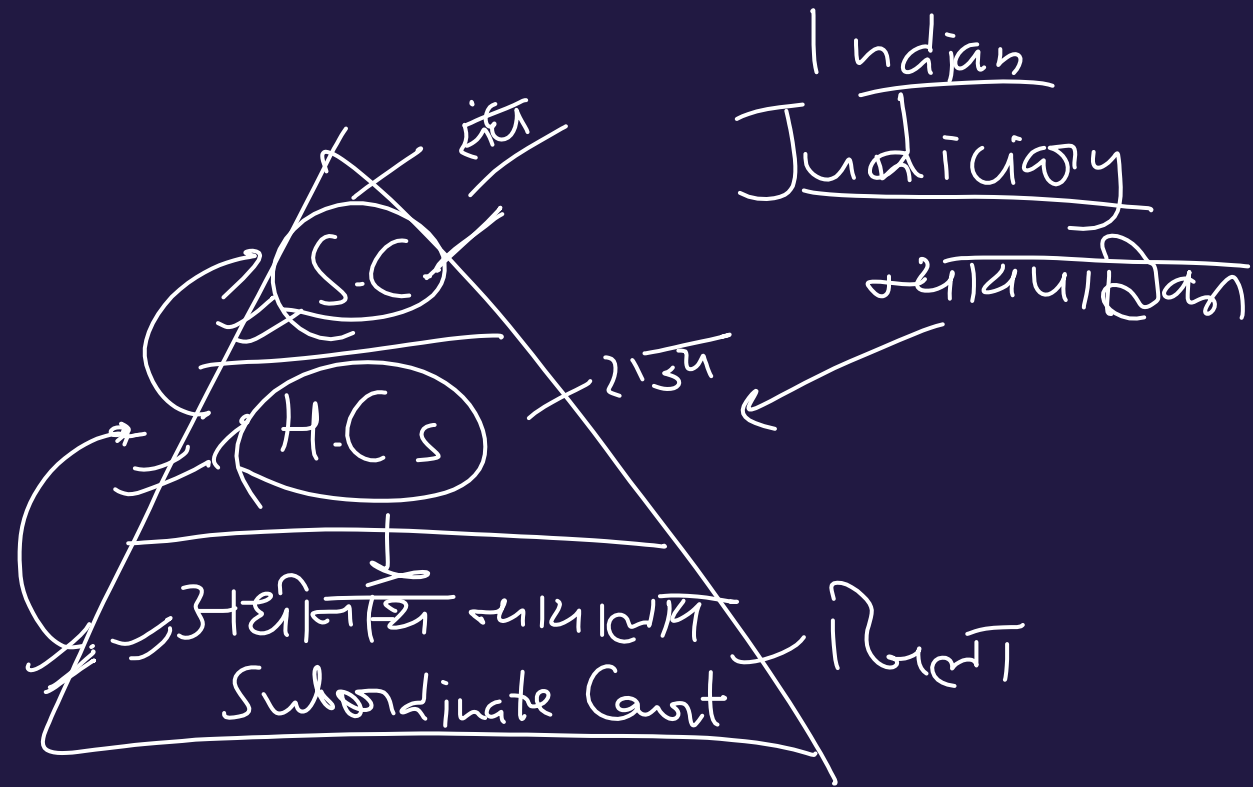 Indian
Judiciary
न्यायपालिका
संघ
S.C
राज्य
H.Cs
अधीनस्थ न्यायालय
Subordinate Court
जिला